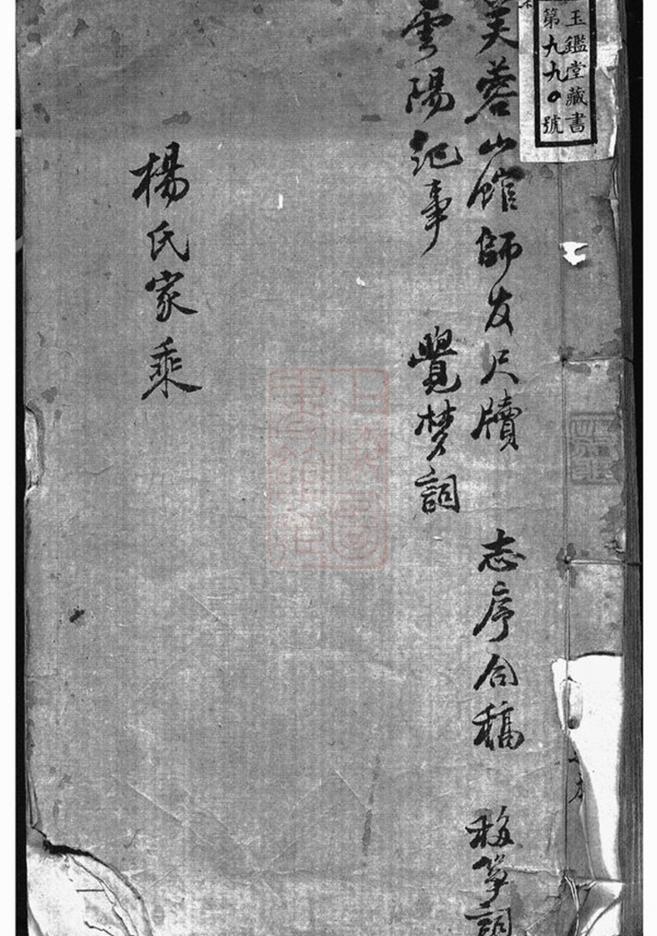 玉鑑堂藏書
第九九〇號
芙蓉山館師友尺牘 志序合稿 移箏詞
雲陽記事 覺梦詞
楊氏家乘